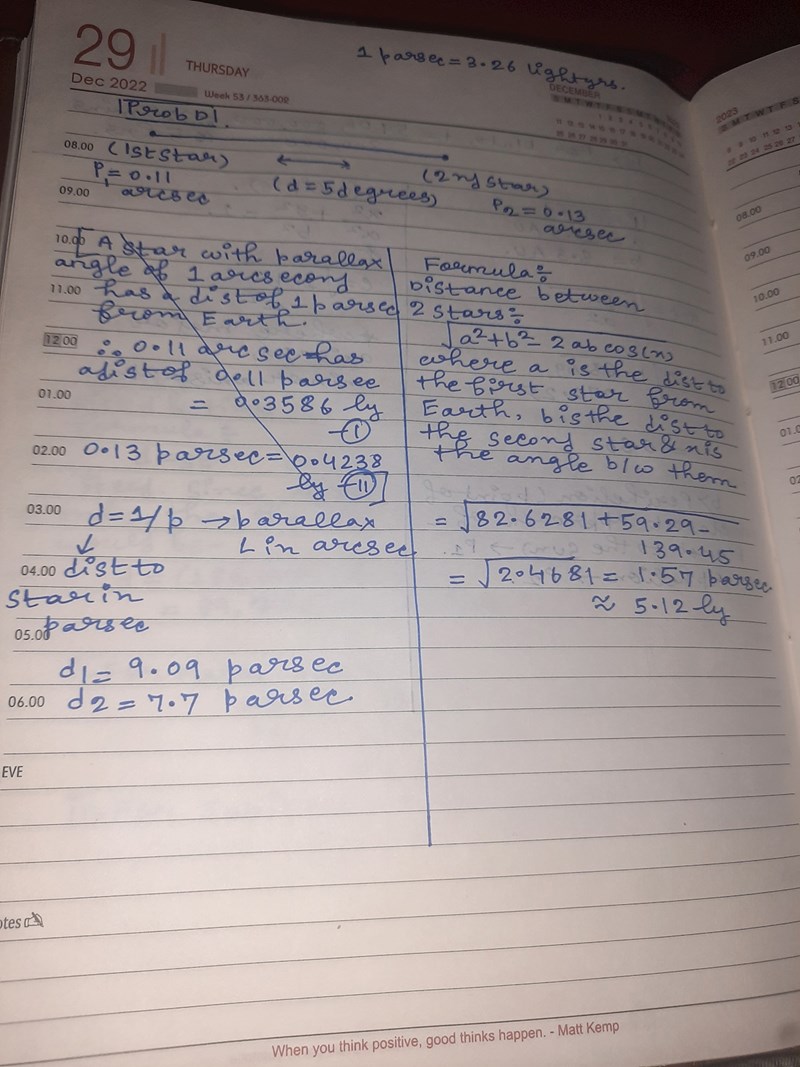 29
THURSDAY
Dec 2022
Week 53 / 363-002
1 parsec = 3.26 lightyrs.
DECEMBER
2023
|Prob D|
08.00 (1st star)
(d = 5 degrees)
(2nd star)
P1 = 0.11
arcsec
P2 = 0.13
arcsec
09.00
10.00 [A star with parallax
angle of 1 arcsecond
11.00 has a dist of 1 parsec
from Earth.
12.00 ∴ 0.11 arc sec has
a dist of 0.11 parsec
01.00 = 0.3586 ly
—(I)
02.00 0.13 parsec = 0.4238
ly —(II)]
03.00 d = 1/p → parallax
∟ in arcsec
04.00 dist to
star in
05.00 parsec
d1 = 9.09 parsec
06.00 d2 = 7.7 parsec
Formula:
Distance between
2 stars:
√a²+b²- 2ab cos(x)
where a is the dist to
the first star from
Earth, b is the dist to
the second star & x is
the angle b/w them
= √82.6281 + 59.29 -
139.45
= √2.4681 = 1.57 parsec
≈ 5.12 ly
EVE
otes
08.00
09.00
10.00
11.00
12.00
01.0
02
When you think positive, good thinks happen. - Matt Kemp